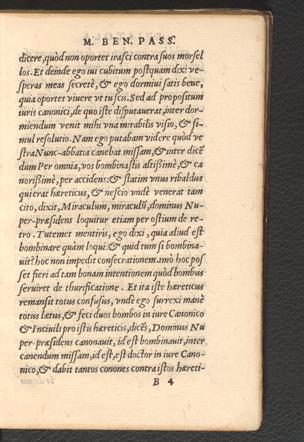 M. BEN. PASS.
dicere, quòd non oportet irasci contra suos morsel
los. Et deinde ego iui cubitum postquam dixi ve-
speras meas secretè, & ego dormiui satis bene,
quia oportet viuere vt tu scis. Sed ad propositum
iuris canonici, de quo iste disputauerat, inter dor-
miendum venit mihi vna mirabilis visio, & si-
mul resolutio. Nam ego putabam videre quòd ve-
stra Nunc-abbatia canebat missam, & inter dicē
dum Per omnia, vos bombinastis altißimè, & ca
norißimè, per accidens: & statim vnus ribaldus
qui erat hæreticus, & nescio vndè venerat tam
cito, dixit, Miraculum, miraculū, dominus Nu-
per-præsidens loquitur etiam per ostium de re-
tro. Tutemet mentiris, ego dixi, quia aliud est
bombinare quàm loqui. & quid tum si bombina-
uit? hoc non impedit consecrationem. imò hoc pos
set fieri ad tam bonam intentionem quòd bombus
seruiret de thurificatione. Et ita iste hæreticus
remansit totus confusus, vndè ego surrexi manè
totus lætus, & feci duos bombos in iure Canonico
& Inciuili pro istis hæreticis, dicēs, Dominus Nu
per-præsidens canonauit, id est bombinauit, inter
canendum missam, id est, est doctor in iure Cano-
nico, & dabit tantos conones contra istos hæreti-
B 4